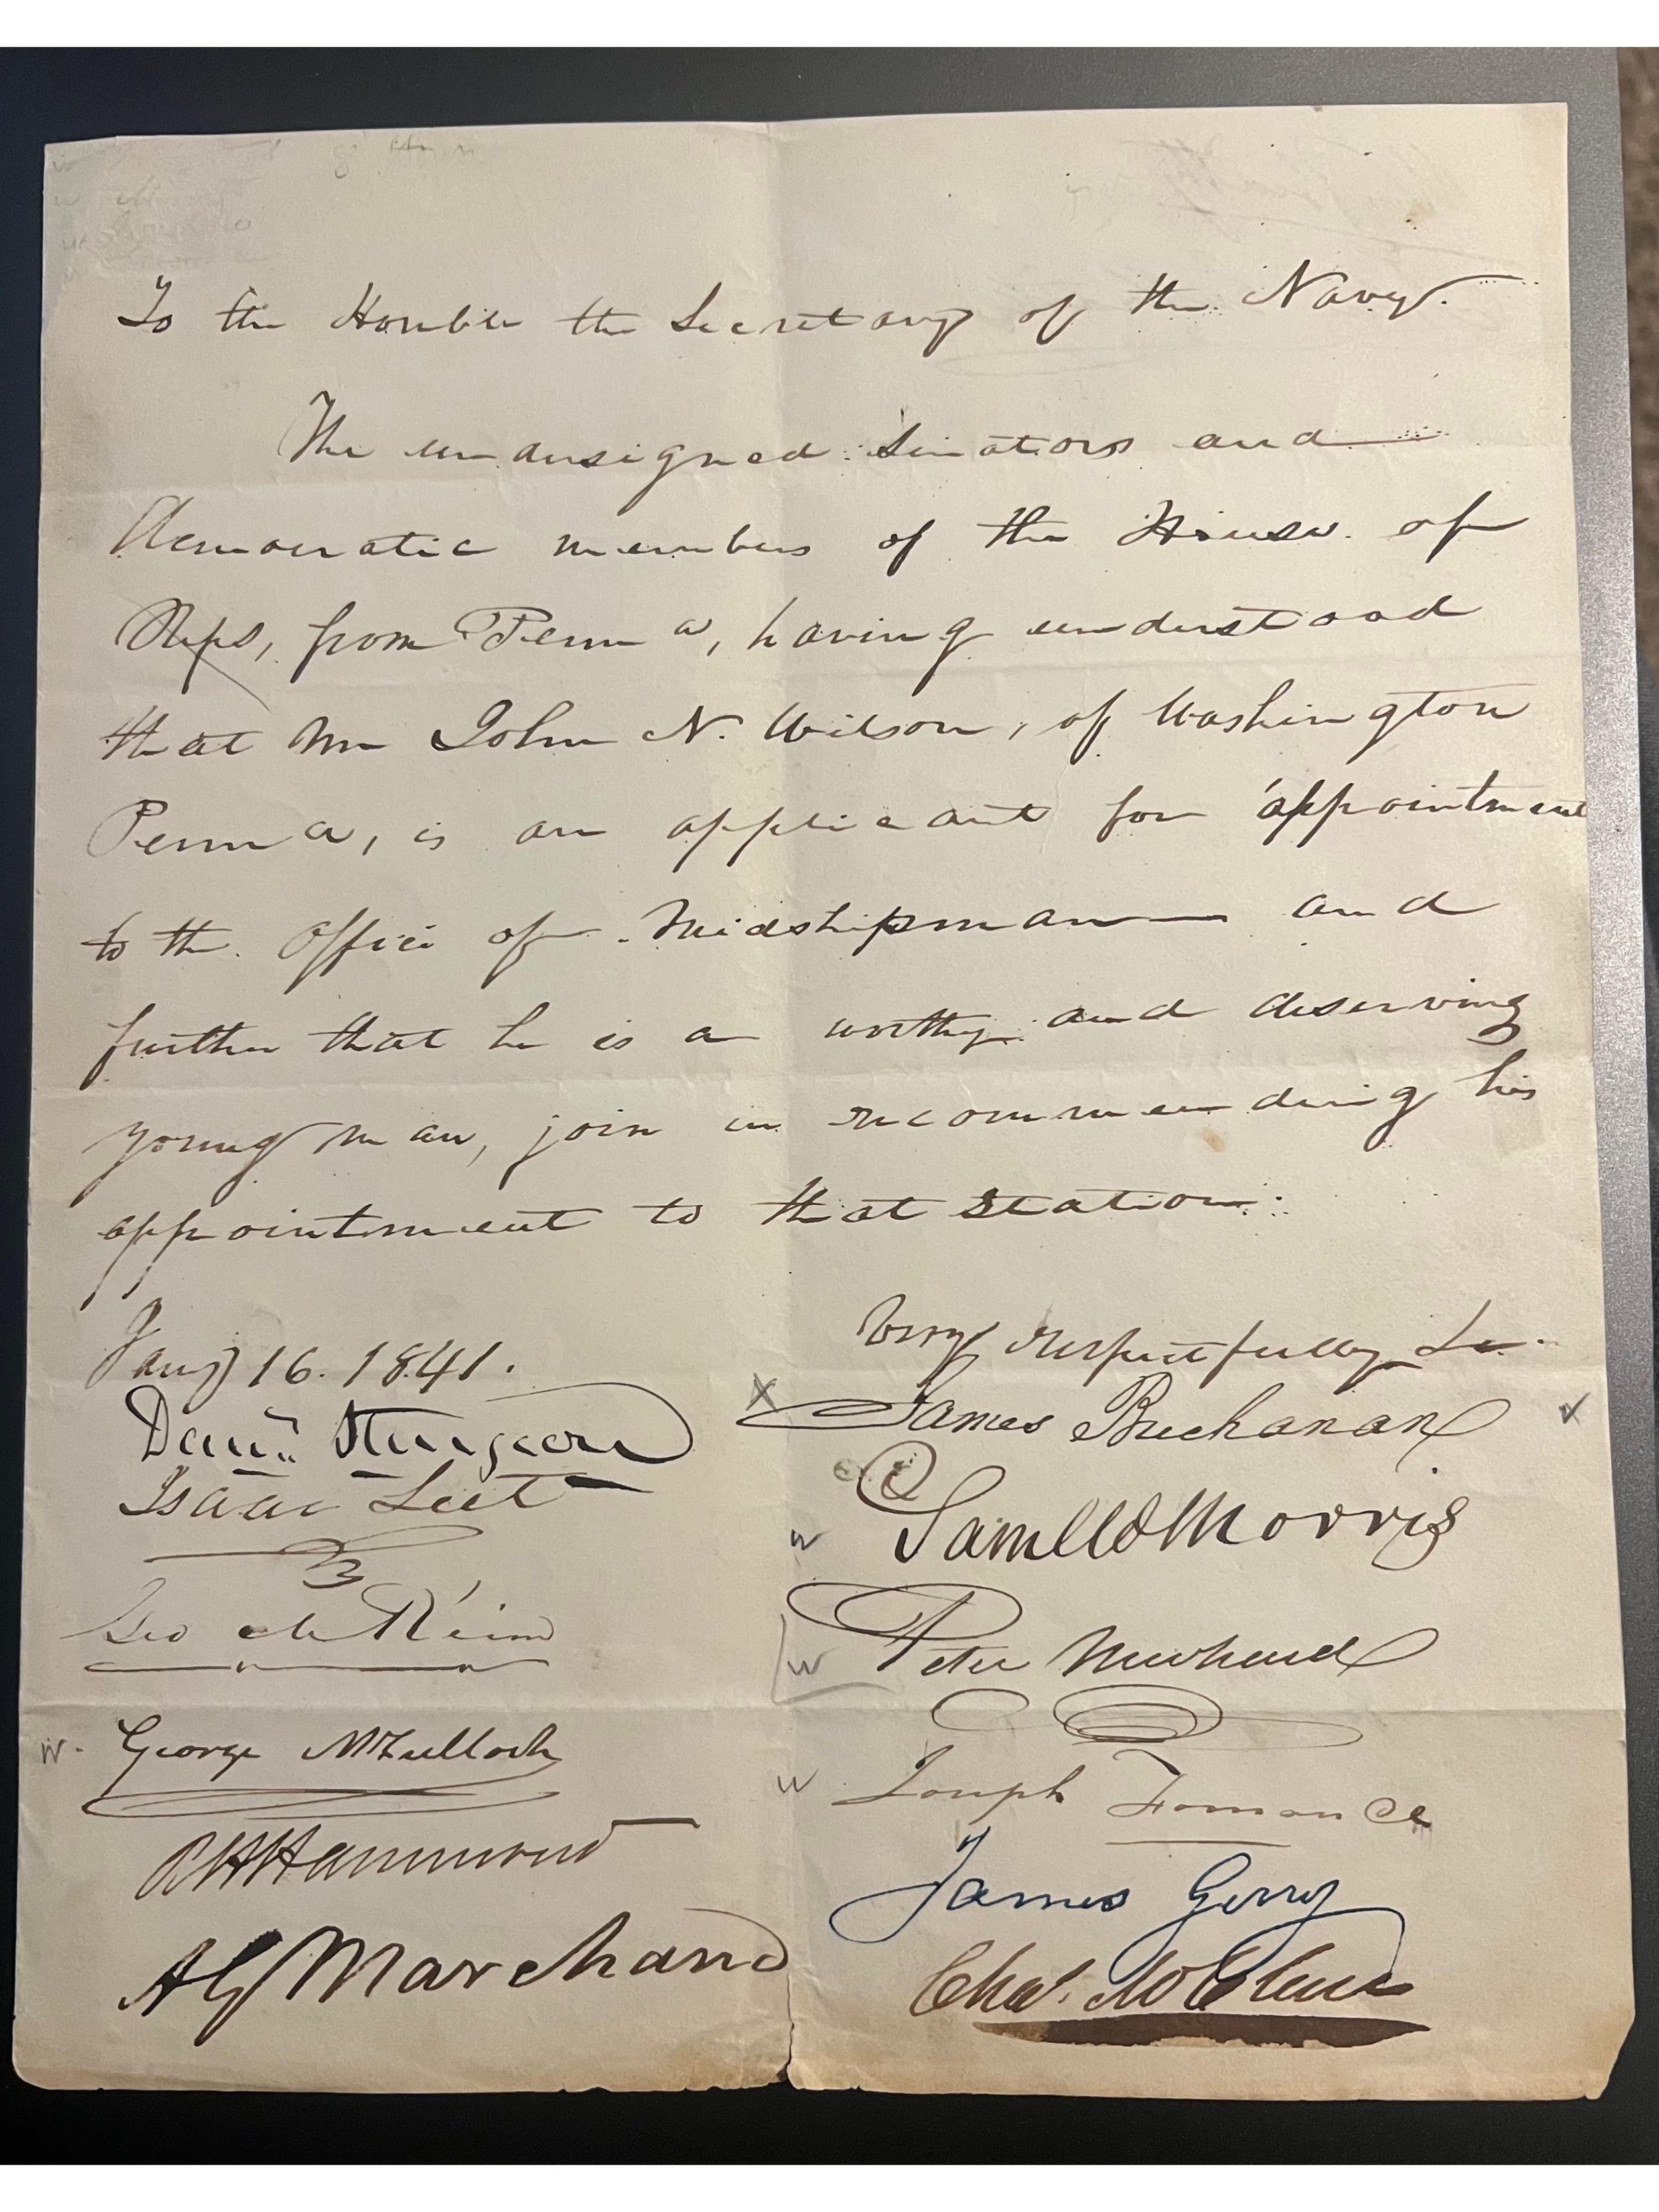 To the Honble the Secretary of the Navy.
The undersigned Senators and
democratic members of the House of
Reps, from Penna, having understood
that Mr John N. Wilson, of Washington
Penna, is an applicant for appointment
to the Office of Midshipman and
further that he is a worthy and deserving
young man, join in recommending his
appointment to that station.
Jany 16. 1841.
Very respectfully &c.
Danl Sturgeon
X James Buchanan
Isaac Leet
Saml W Morris
Geo M Keim
Peter Newhard
George McCulloch
Joseph Fornance
R H Hammond
James Gerry
A G Marchand
Chas. McClure